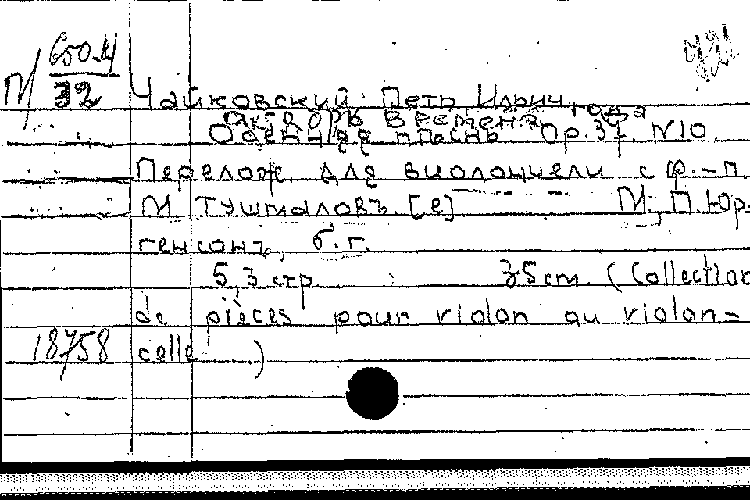 П/ 650.4
32
Чайковский Петр Ильич
Октябрь Времена года
Осенняя песнь Op. 37 N10.
Перелож для виолончели с ф.-п.
М Тушмаловъ. [e] М., П. Юр.
генсонъ, б.г.
5,3 стр. 35 cm. (Collection
de pièces pour violon au violon=
18758 celle )